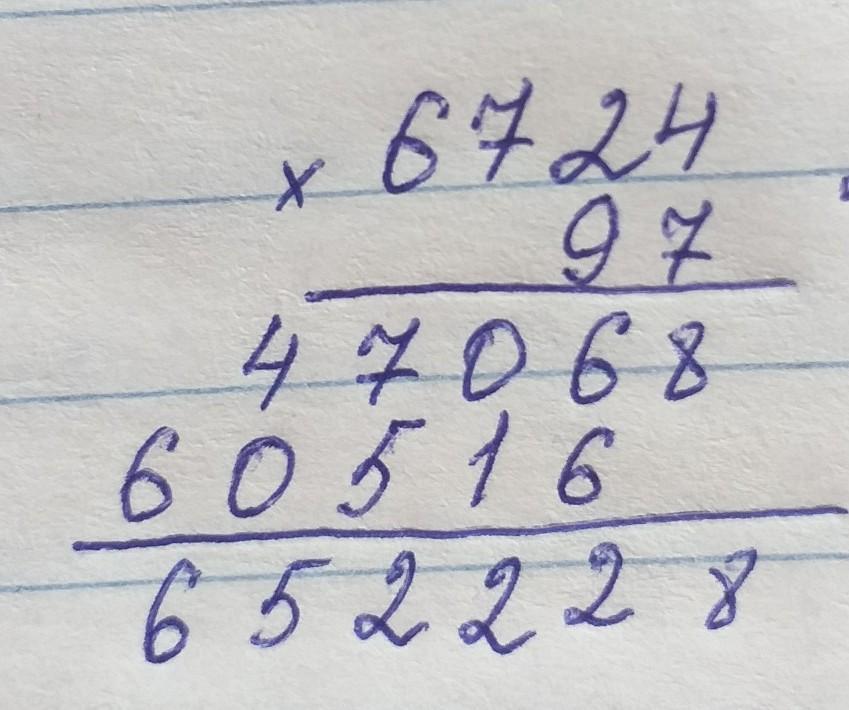 × 6724
97
47068
60516
652228